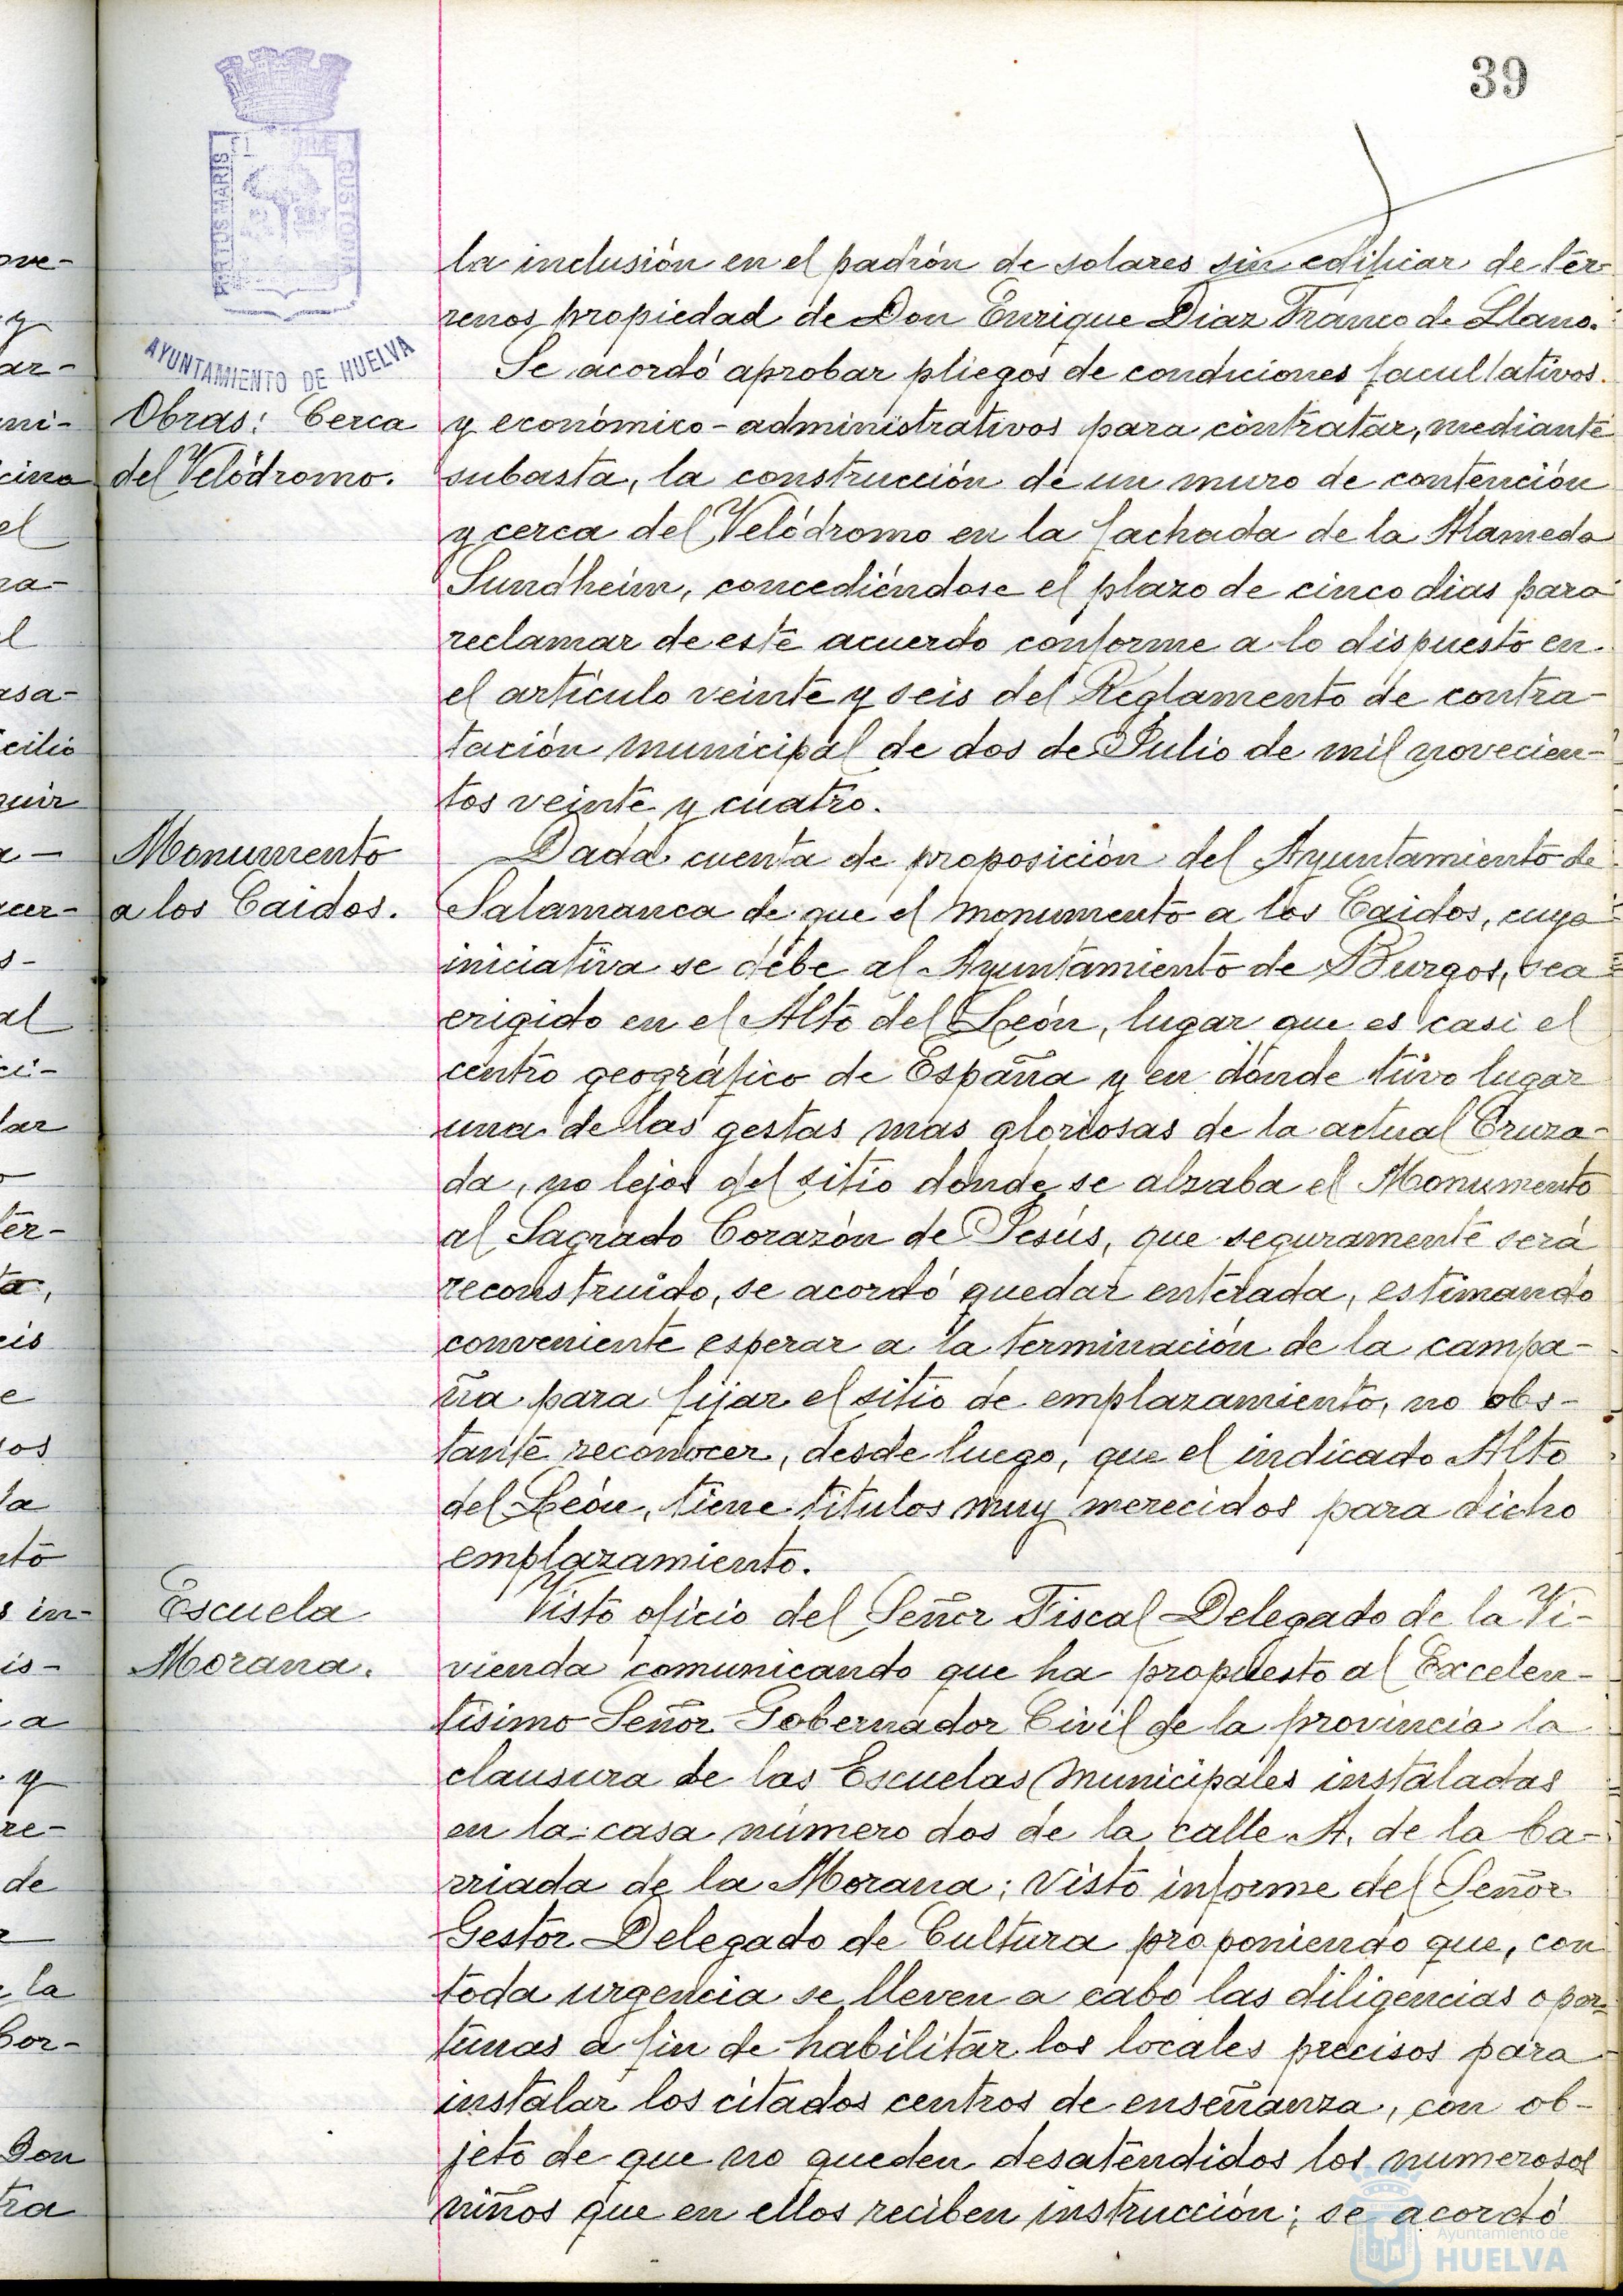 39
PORTUS MARIS
CUSTODIA
AYUNTAMIENTO DE HUELVA
la inclusión en el padrón de solares sin edificar de tér-
renos propiedad de Don Enrique Diaz Franco de Llano.
Obras: Cerca
del Velódromo.
Se acordó aprobar pliegos de condiciones facultativos
y económico-administrativos para contratar, mediante
subasta, la construcción de un muro de contención
y cerca del Velódromo en la fachada de la Alameda
Sundheim, concediéndose el plazo de cinco dias para
reclamar de este acuerdo conforme a lo dispuesto en
el artículo veinte y seis del Reglamento de contra-
tación municipal de dos de Julio de mil novecien-
tos veinte y cuatro.
Monumento
a los Caidos.
Dada cuenta de proposición del Ayuntamiento de
Salamanca de que el monumento a los Caidos, cuya
iniciativa se debe al Ayuntamiento de Burgos, sea
erigido en el Alto del León, lugar que es casi el
centro geográfico de España y en dónde tuvo lugar
una de las gestas mas gloriosas de la actual Cruza-
da, no lejos del sitio donde se alzaba el Monumento
al Sagrado Corazón de Jesús, que seguramente será
reconstruido, se acordó quedar enterada, estimando
conveniente esperar a la terminación de la campa-
ña para fijar el sitio de emplazamiento, no obs-
tante reconocer, desde luego, que el indicado Alto
del León, tiene titulos muy merecidos para dicho
emplazamiento.
Escuela
Morana.
Visto oficio del Señor Fiscal Delegado de la Vi-
vienda comunicando que ha propuesto al Excelen-
tisimo Señor Gobernador Civil de la provincia la
clausura de las Escuelas Municipales instaladas
en la casa número dos de la calle A. de la ba-
rriada de la Morana; visto informe del Señor
Gestor Delegado de Cultura proponiendo que, con
toda urgencia se lleven a cabo las diligencias opor-
tunas a fin de habilitar los locales precisos para
instalar los citados centros de enseñanza, con ob-
jeto de que no queden desatendidos los numerosos
niños que en ellos reciben instrucción; se acordó
Ayuntamiento de
HUELVA